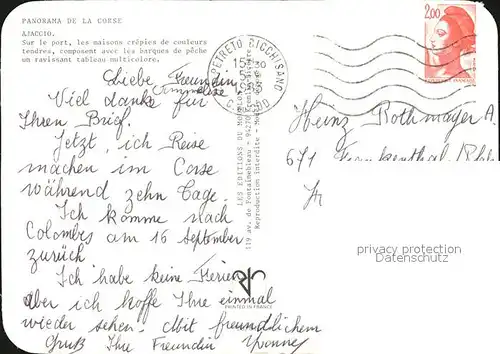 PANORAMA DE LA CORSE
AJACCIO.
Sur le port, les maisons crépies de couleurs
tendres, composent avec les barques de pêche
un ravissant tableau multicolore.
Liebe Freundin
Annelise
Viel danke für
Ihren Brief.
Jetzt, ich Reise
machen im Corse
während zehn Tage.
Ich komme nach
Colombes am 16 september
zurück
Ich habe keine Ferien
aber ich hoffe Ihne einmal
wieder sehen. Mit freundlichem
Gruß Ihre Freundin Yvonne
LES EDITIONS DU
119 av. de Fontainebleau - 94270
Reproduction interdite
PRINTED IN FRANCE
PETRETO BICCHISANO
2,00
Heinz Rothmayer
671 Frankenthal
protection watermark
Datenschutz